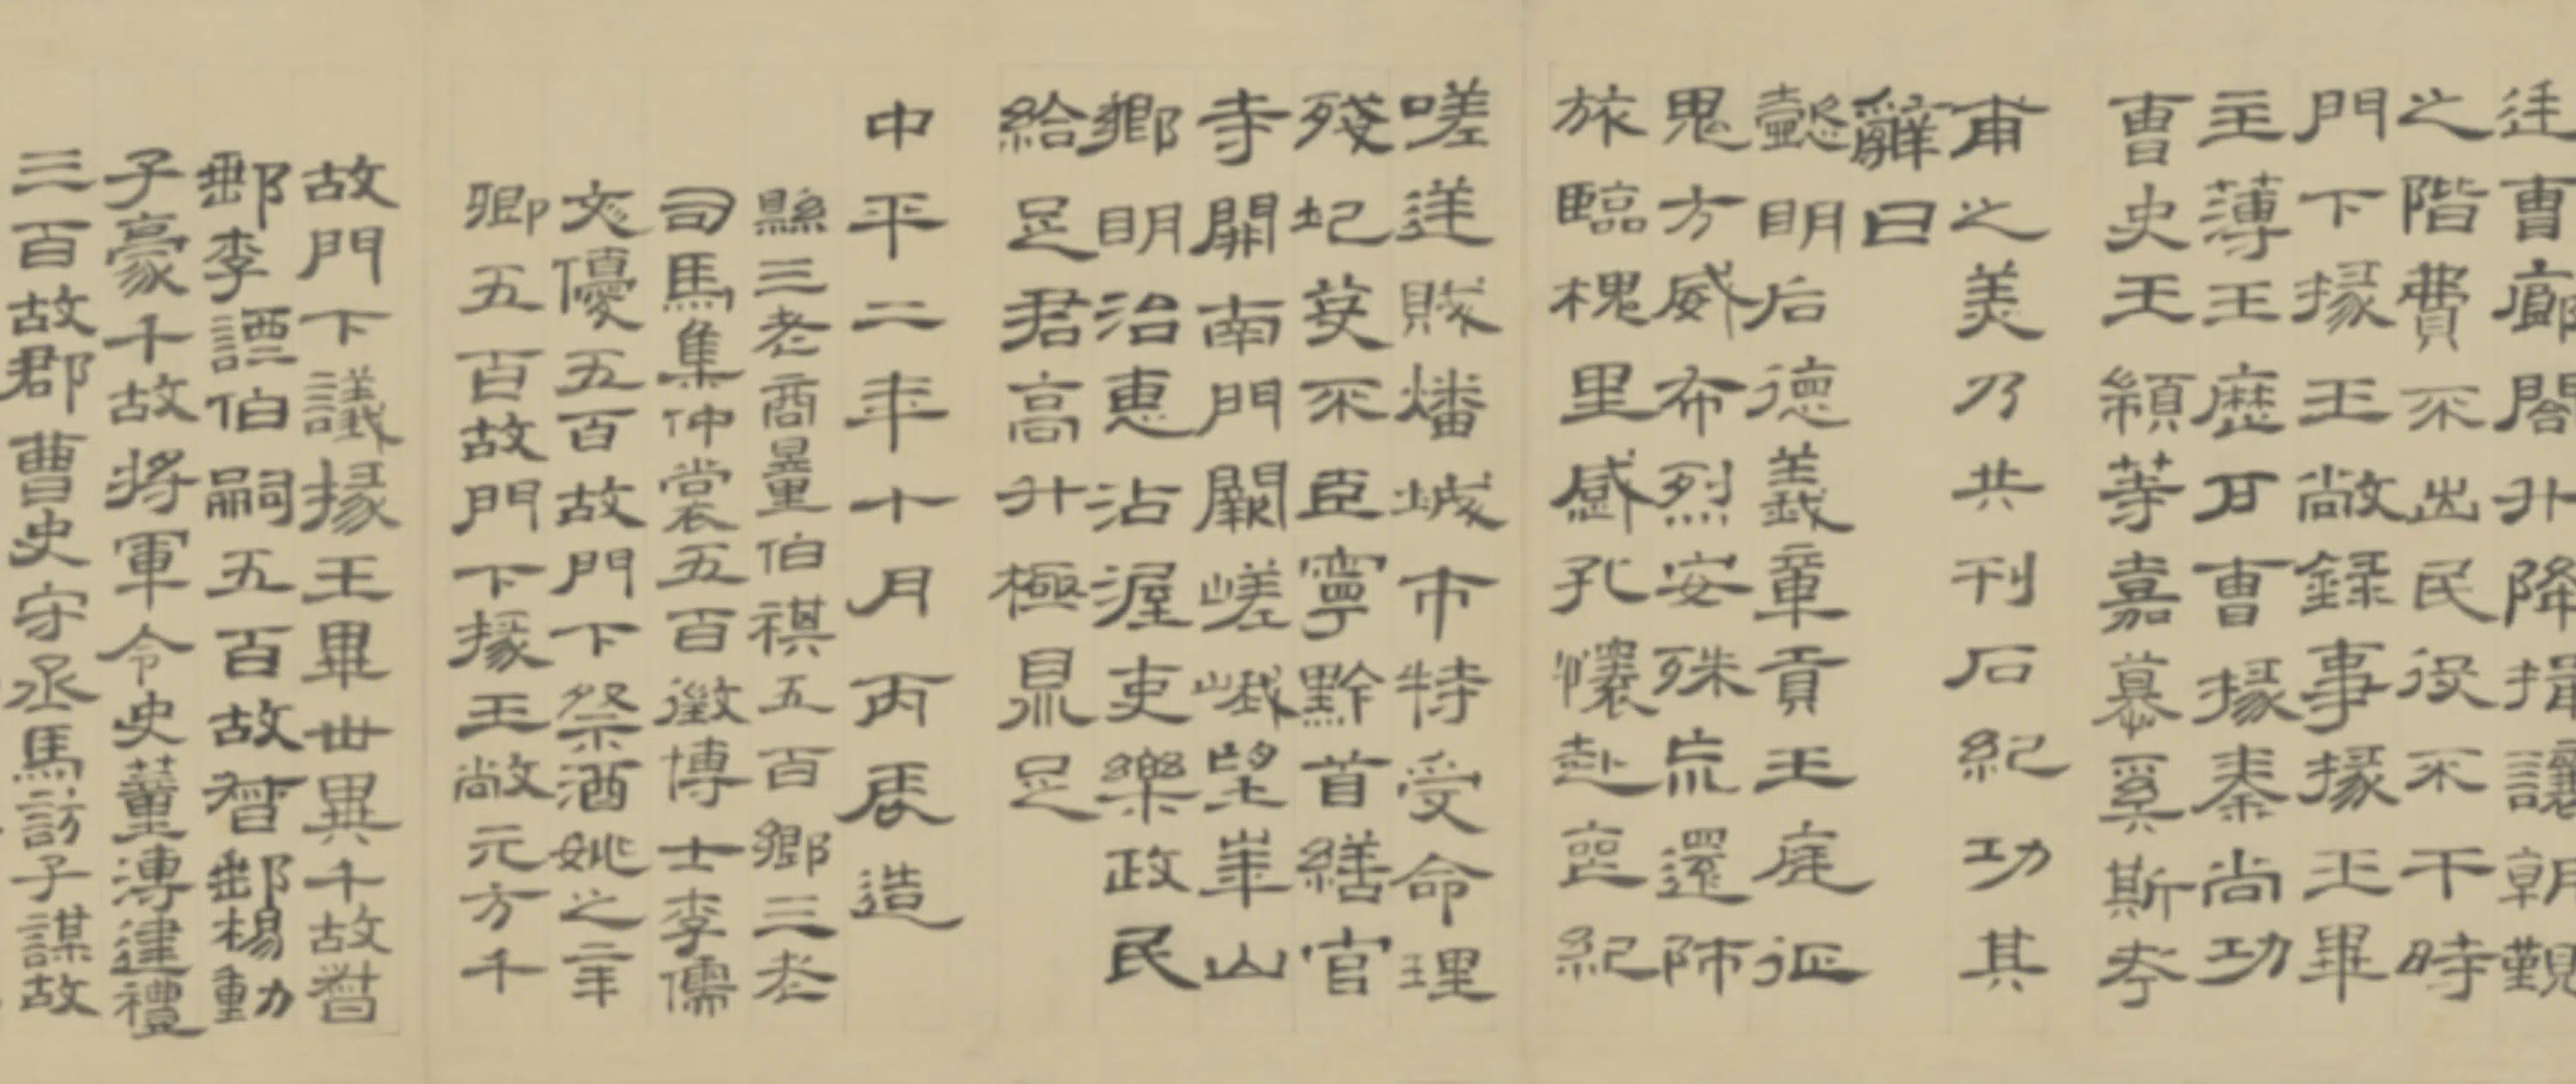 廷曹廊閤升降揖讓朝覲
之階費不出民役不干時
門下掾王敞錄事掾王畢
主薄王歷戶曹掾秦尚功
曹史王顓等嘉慕奚斯考
甫之美乃共刊石紀功其
辭曰
懿明后德義章貢王庭征
鬼方威布烈安殊荒還師
旅臨槐里感孔懷赴喪紀
嗟逆賊燔城市特受命理
殘圮芟不臣寧黔首繕官
寺開南門闕嵯峨望崋山
鄉明治惠沾渥吏樂政民
給足君高升極鼎足
中平二年十月丙辰造
縣三老商量伯祺五百鄉三老
司馬集仲裳五百徵博士李儒
文優五百故門下祭酒姚之辛
卿五百故門下掾王敞元方千
故門下議掾王畢世異千故督
郵李諲伯嗣五百故督郵楊動
子豪千故將軍令史董溥建禮
三百故郡曹史守丞馬訪子謀故